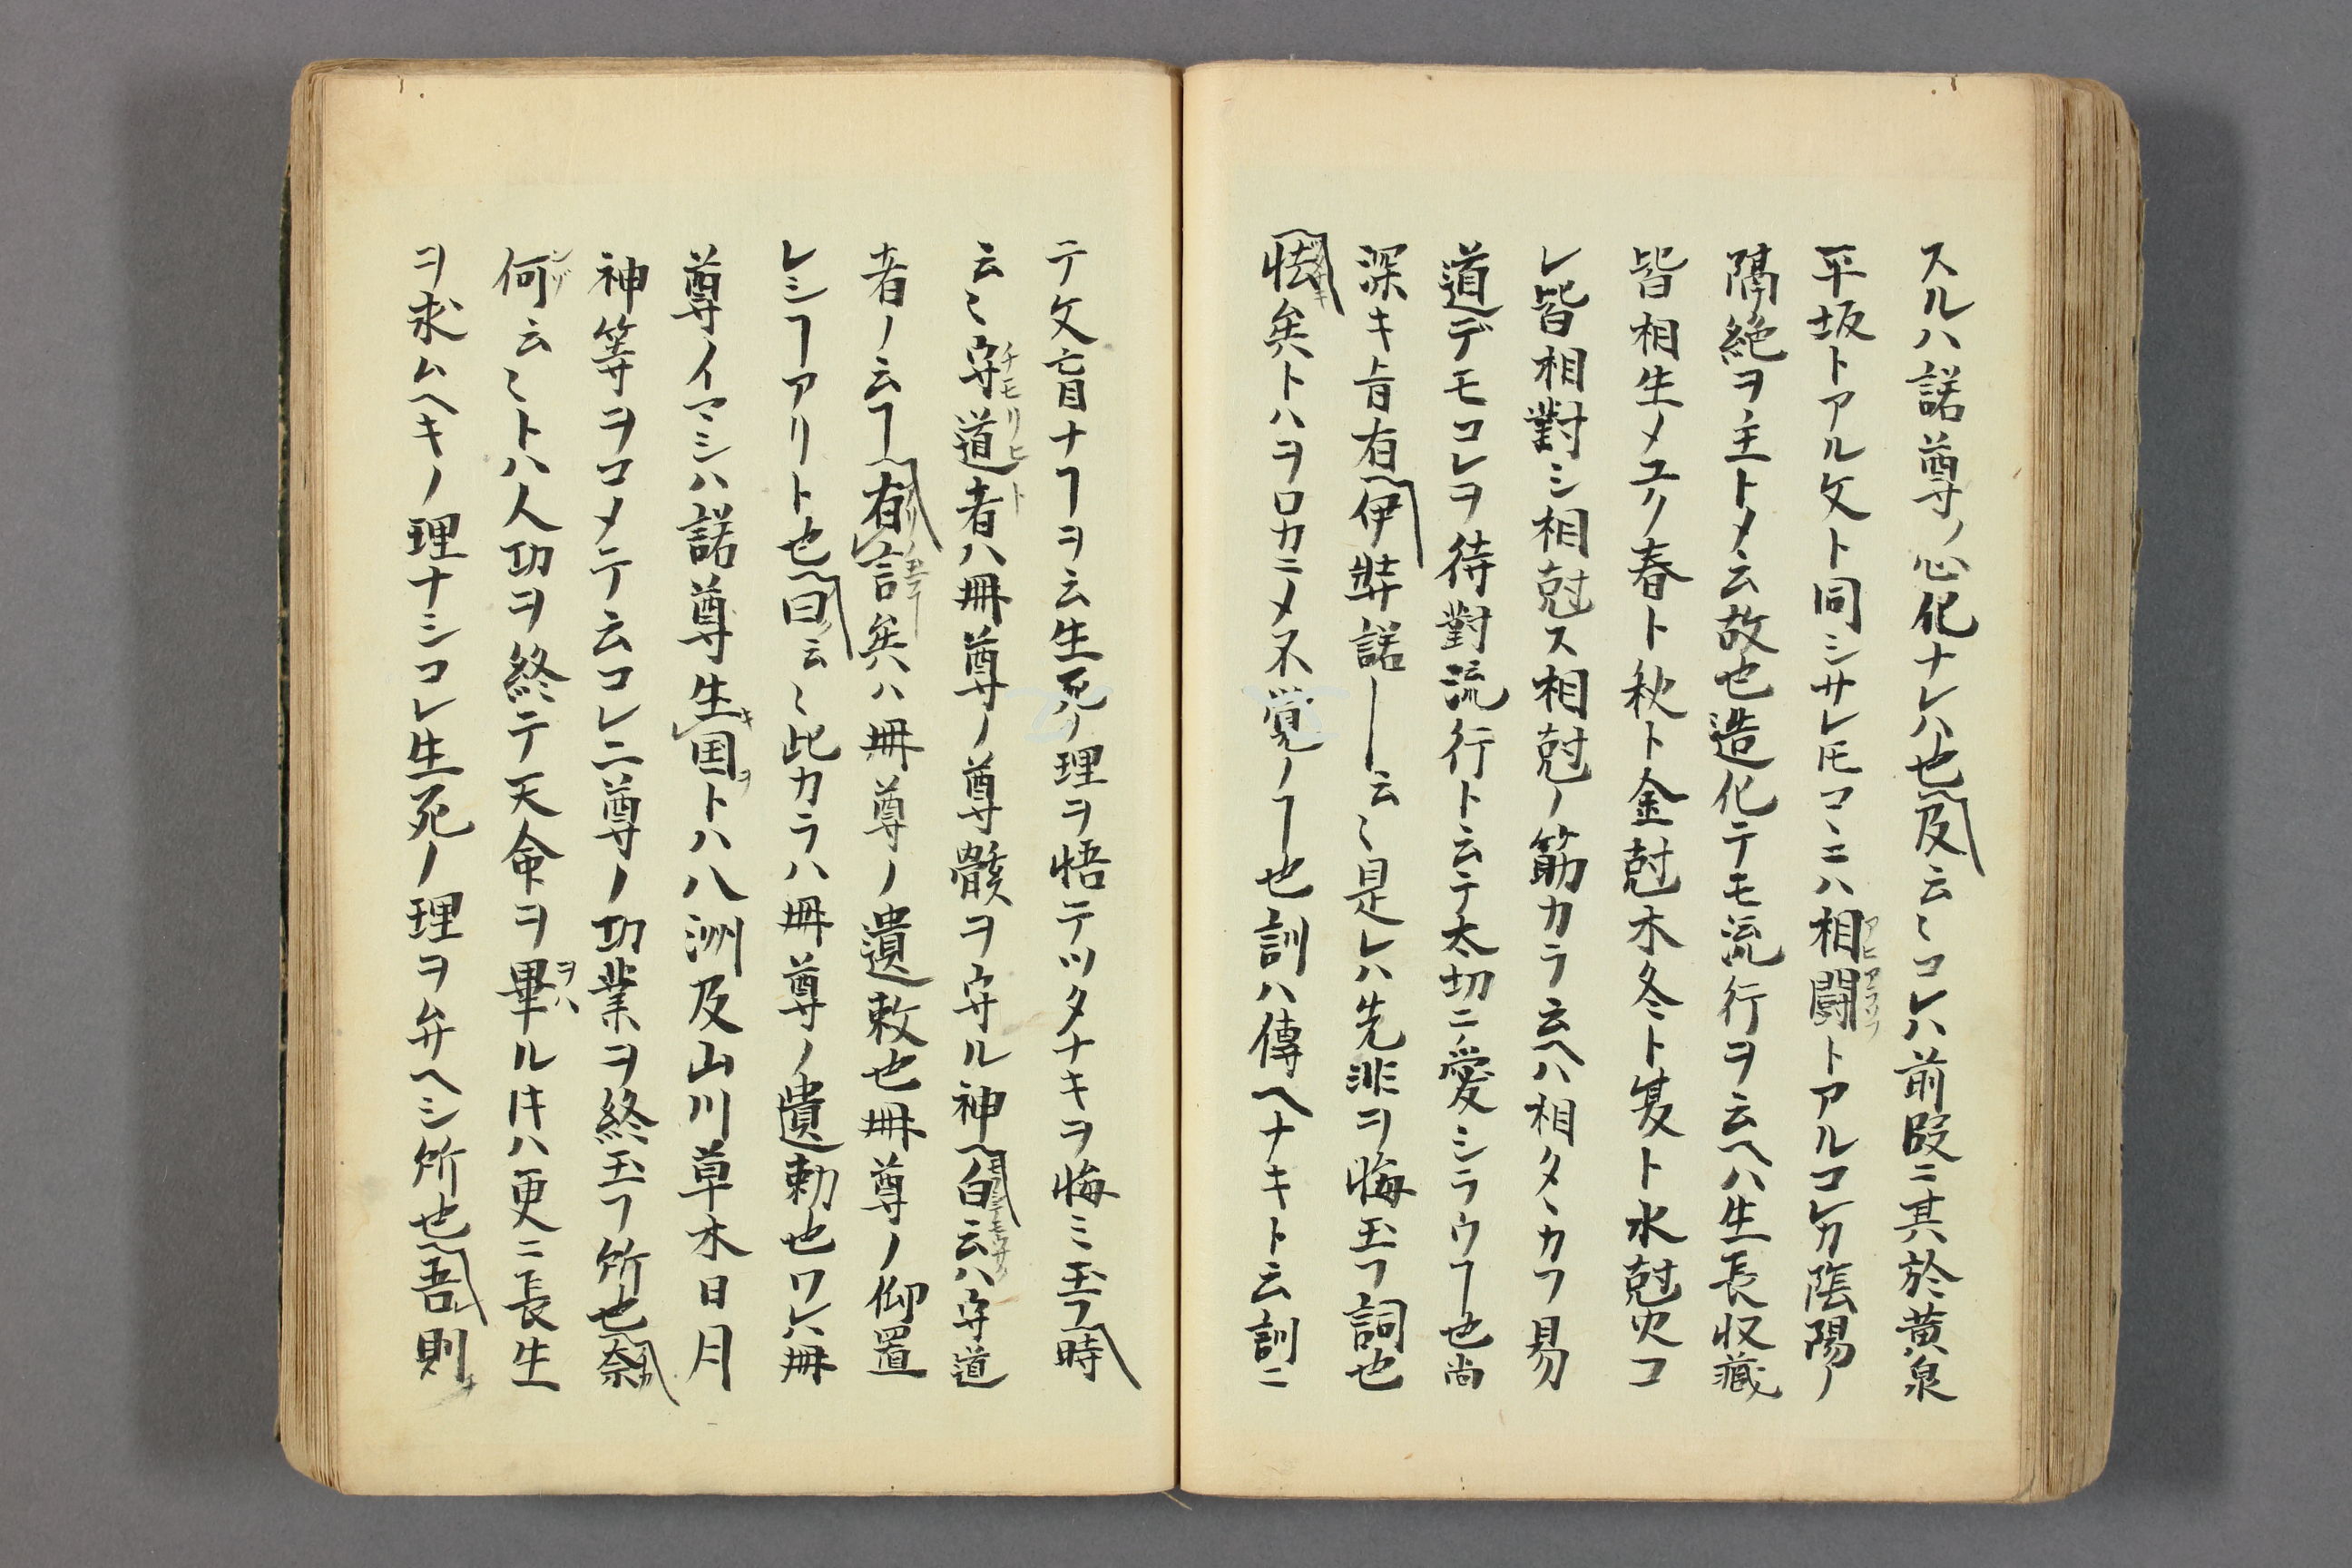 スルハ諾尊ノ心化ナレハ也及云〻コレハ前段ニ其於黄泉
平坂トアル文ト同シサレ𪜈コヽニハ相闘トアルコレカ陰陽ノ
隔絶ヲ主トメ云故也造化テモ流行ヲ云ヘハ生長収蔵
皆相生メユク春ト秋ト金尅木冬ト夏ト水尅火コ
レ皆相對シ相尅ス相尅ノ筋カラ云ヘハ相タヽカフ易
道デモコレヲ待對流行ト云テ太切ニ愛シラウヿ也尚
深キ旨有伊弉諾―云〻是レハ先非ヲ悔玉フ詞也
怯矣トハヲロカニメ不覚ノヿ也訓ハ傳ヘナキト云訓ニ
テ文盲ナヿヲ云生死ノ理ヲ悟テツタナキヲ悔ミ玉フ時
云〻守道者ハ冊尊ノ尊骸ヲ守ル神白云ハ守道
者ノ云ヿ有言矣ハ冊尊ノ遺敕也冊尊ノ仰置
レシヿアリト也曰云〻此カラハ冊尊ノ遺勅也ワレハ冊
尊ノイマシハ諾尊生国トハ八洲及山川草木日月
神等ヲコメテ云コレ二尊ノ功業ヲ終玉フ所也奈
何云〻トハ人功ヲ終テ天命ヲ畢ル㕝ハ更ニ長生
ヲ求ムヘキノ理ナシコレ生死ノ理ヲ弁ヘシ所也吾則